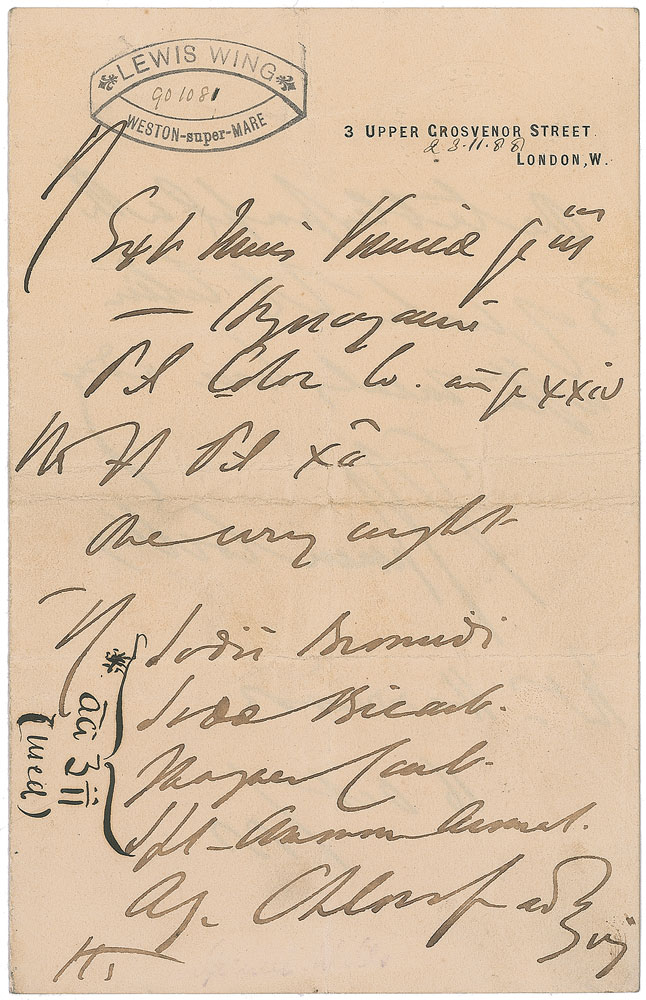 LEWIS WING
901081
WESTON-super-MARE
3 UPPER GROSVENOR STREET.
23.11.88
LONDON, W.
Ext Nucis Vomicae gr iii
— Hyoscyami
Pil Coloc Co. aa gr xxiv
Ft Pil xii
One every night
Sodii Bromidi
Sodae Bicarb.
Magnes Carb.
Spt Ammon Aromat.
āā ʒii
(used)
Aq. Chlorof ad ʒvi